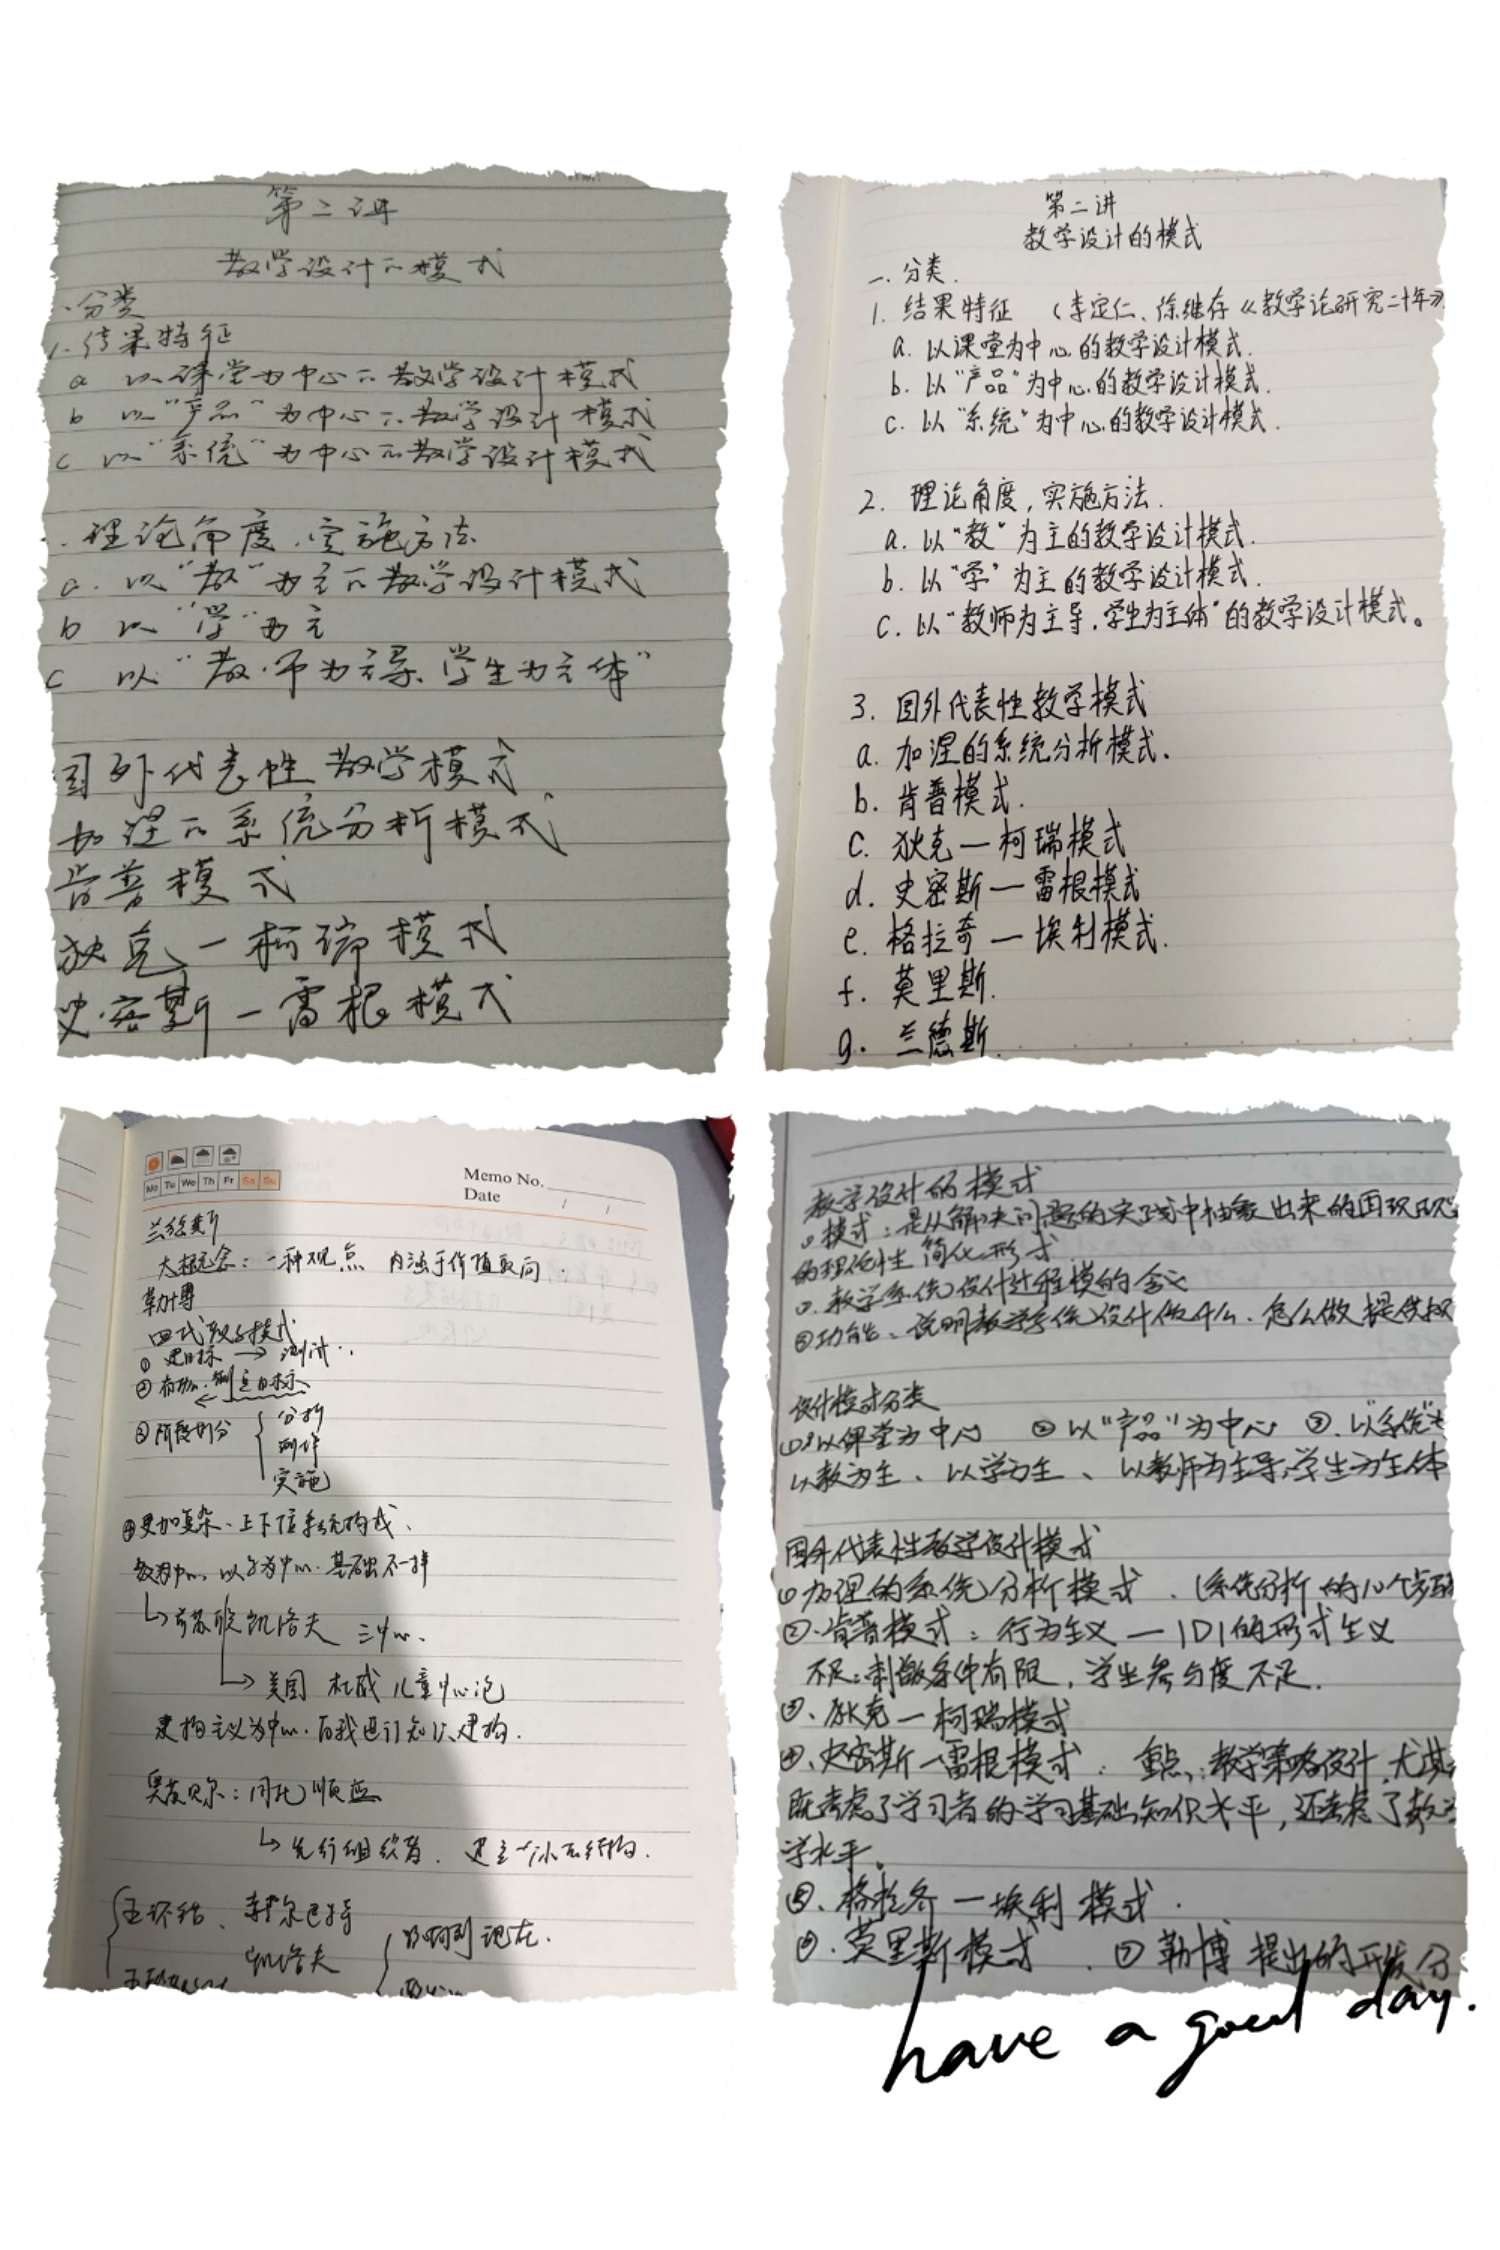 第二讲
教学设计的模式
一.分类
1.结果特征
a 以课堂为中心的教学设计模式
b 以"产品"为中心的教学设计模式
c 以"系统"为中心的教学设计模式
.理论角度.实施方法
a. 以"教"为主的教学设计模式
b 以"学"为主
c 以"教师为主导、学生为主体"
国外代表性教学模式
加涅的系统分析模式
肯普模式
狄克一柯瑞模式
史密斯一雷根模式
第二讲
教学设计的模式
一.分类.
1. 结果特征 (李定仁、徐继存《教学论研究二十年》
a. 以课堂为中心的教学设计模式.
b. 以"产品"为中心的教学设计模式.
c. 以"系统"为中心的教学设计模式.
2. 理论角度,实施方法.
a. 以"教"为主的教学设计模式.
b. 以"学"为主的教学设计模式.
c. 以"教师为主导,学生为主体"的教学设计模式。
3. 国外代表性教学模式
a. 加涅的系统分析模式.
b. 肯普模式.
c. 狄克一柯瑞模式
d. 史密斯一雷根模式
e. 格拉奇一埃利模式.
f. 莫里斯.
g. 兰德斯.
Mo Tu We Th Fr Sa Su
Memo No.
Date / /
大概念:一种观点 内涵于价值取向.
勒博
四代教学模式
① 定目标 → 测评
②
③阶段划分 { 分析
制作
实施
④更加复杂.上下位系统构成.
教为中心,以学为中心.基础不一样
↳前苏联凯洛夫 三中心.
↳美国 杜威 儿童中心论
建构主义为中心.自我进行知识建构.
奥苏贝尔:同化 顺应
↳先行组织者. 建立一个小的结构.
五环节、赫尔巴特
凯洛夫
教学设计的模式
①模式:是从解决问题的实践中抽象出来的
的理论性简化形式.
②.教学(系统)设计过程模的含义
③功能、说明教学(系统)设计做什么、怎么做 提供
设计模式分类
①以课堂为中心 ②以"产品"为中心 ③.以"系统"
以教为主、以学为主、以教师为主导,学生为主体
国外代表性教学设计模式
①加理的(系统)分析模式.(系统分析的10个步骤
②.肯普模式:行为主义一ID1的形式主义
不足:刺激条件有限,学生参与度不足.
③.狄克一柯瑞模式
④.史密斯一雷根模式. 重点:教学策略设计,尤其
既考虑了学习者的学习基础知识水平,还考虑了教
学水平。
⑤.格拉奇一埃利模式.
⑥.莫里斯模式. ⑦勒博提出的开发分
have a good day.